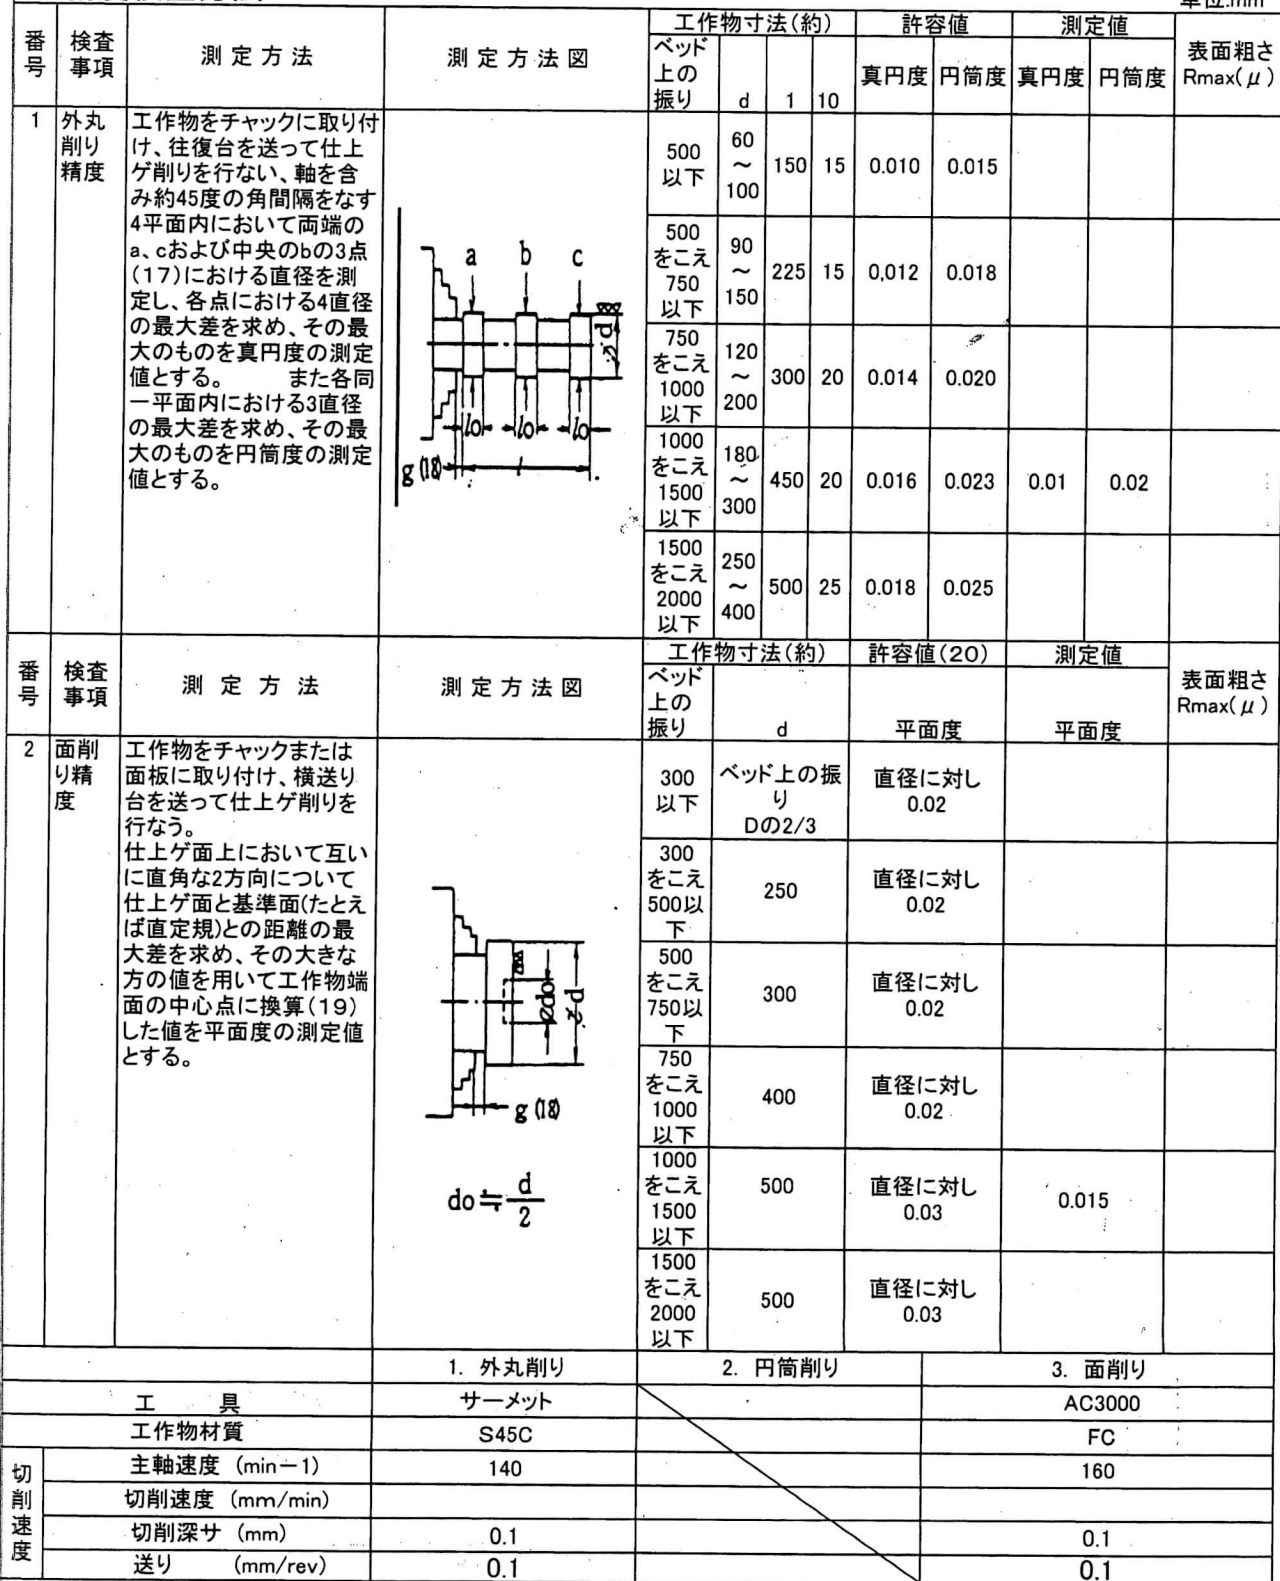 単位:mm
番号
検査事項
測定方法
測定方法図
工作物寸法(約)
許容値
測定値
表面粗さ
Rmax(μ)
ベッド
上の
振り
d
1
10
真円度
円筒度
真円度
円筒度
1
外丸
削り
精度
工作物をチャックに取り付
け、往復台を送って仕上
ゲ削りを行ない、軸を含
み約45度の角間隔をなす
4平面内において両端の
a、cおよび中央のbの3点
(17)における直径を測
定し、各点における4直径
の最大差を求め、その最
大のものを真円度の測定
値とする。 また各同
一平面内における3直径
の最大差を求め、その最
大のものを円筒度の測定
値とする。
a b c
ød
lo lo lo
g (18) l
500
以下
60
~
100
150 15 0.010 0.015
500
をこえ
750
以下
90
~
150
225 15 0,012 0.018
750
をこえ
1000
以下
120
~
200
300 20 0.014 0.020
1000
をこえ
1500
以下
180
~
300
450 20 0.016 0.023 0.01 0.02
1500
をこえ
2000
以下
250
~
400
500 25 0.018 0.025
番号
検査事項
測定方法
測定方法図
工作物寸法(約)
許容値(20)
測定値
表面粗さ
Rmax(μ)
ベッド
上の
振り
d
平面度
平面度
2
面削
り精
度
工作物をチャックまたは
面板に取り付け、横送り
台を送って仕上ゲ削りを
行なう。
仕上ゲ面上において互い
に直角な2方向について
仕上ゲ面と基準面(たとえ
ば直定規)との距離の最
大差を求め、その大きな
方の値を用いて工作物端
面の中心点に換算(19)
した値を平面度の測定値
とする。
ødo
ød
g (18)
do≒d/2
300
以下
ベッド上の振
り
Dの2/3
直径に対し
0.02
300
をこえ
500以
下
250
直径に対し
0.02
500
をこえ
750以
下
300
直径に対し
0.02
750
をこえ
1000
以下
400
直径に対し
0.02
1000
をこえ
1500
以下
500
直径に対し
0.03
0.015
1500
をこえ
2000
以下
500
直径に対し
0.03
1. 外丸削り 2. 円筒削り 3. 面削り
工 具 サーメット AC3000
工作物材質 S45C FC
切削速度
主軸速度 (min-1) 140 160
切削速度 (mm/min)
切削深サ (mm) 0.1 0.1
送り (mm/rev) 0.1 0.1